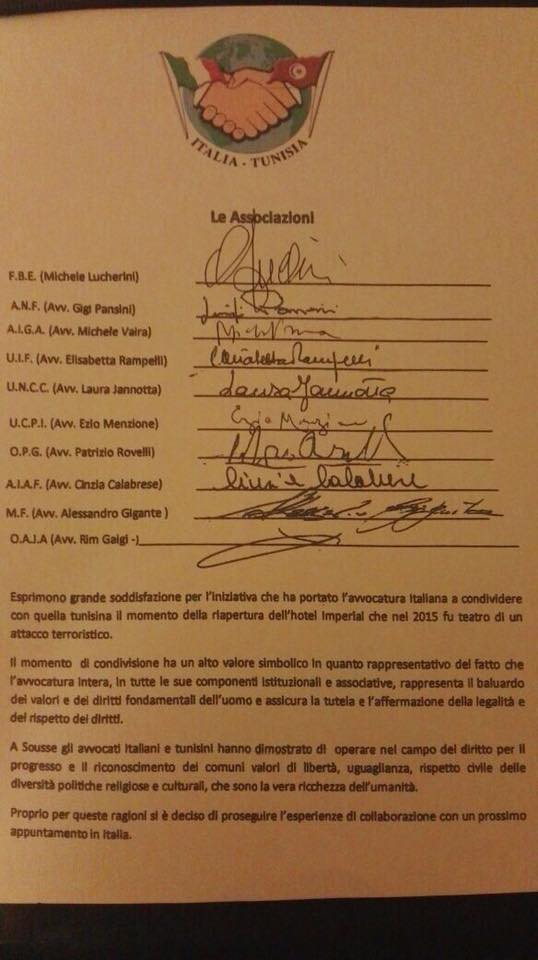 ITALIA - TUNISIA
Le Associazioni
F.B.E. (Michele Lucherini)
A.N.F. (Avv. Gigi Pansini)
A.I.G.A. (Avv. Michele Vaira)
U.I.F. (Avv. Elisabetta Rampelli) Elisabetta Rampelli
U.N.C.C. (Avv. Laura Jannotta) Laura Jannotta
U.C.P.I. (Avv. Ezio Menzione)
O.P.G. (Avv. Patrizio Rovelli)
A.I.A.F. (Avv. Cinzia Calabrese)
M.F. (Avv. Alessandro Gigante )
O.A.J.A (Avv. Rim Gaigi -)
Esprimono grande soddisfazione per l'iniziativa che ha portato l'avvocatura italiana a condividere
con quella tunisina il momento della riapertura dell'hotel Imperial che nel 2015 fu teatro di un
attacco terroristico.
Il momento di condivisione ha un alto valore simbolico in quanto rappresentativo del fatto che
l'avvocatura intera, in tutte le sue componenti istituzionali e associative, rappresenta il baluardo
dei valori e dei diritti fondamentali dell'uomo e assicura la tutela e l'affermazione della legalità e
del rispetto dei diritti.
A Sousse gli avvocati italiani e tunisini hanno dimostrato di operare nel campo del diritto per il
progresso e il riconoscimento dei comuni valori di libertà, uguaglianza, rispetto civile delle
diversità politiche religiose e culturali, che sono la vera ricchezza dell'umanità.
Proprio per queste ragioni si è deciso di proseguire l'esperienze di collaborazione con un prossimo
appuntamento in Italia.